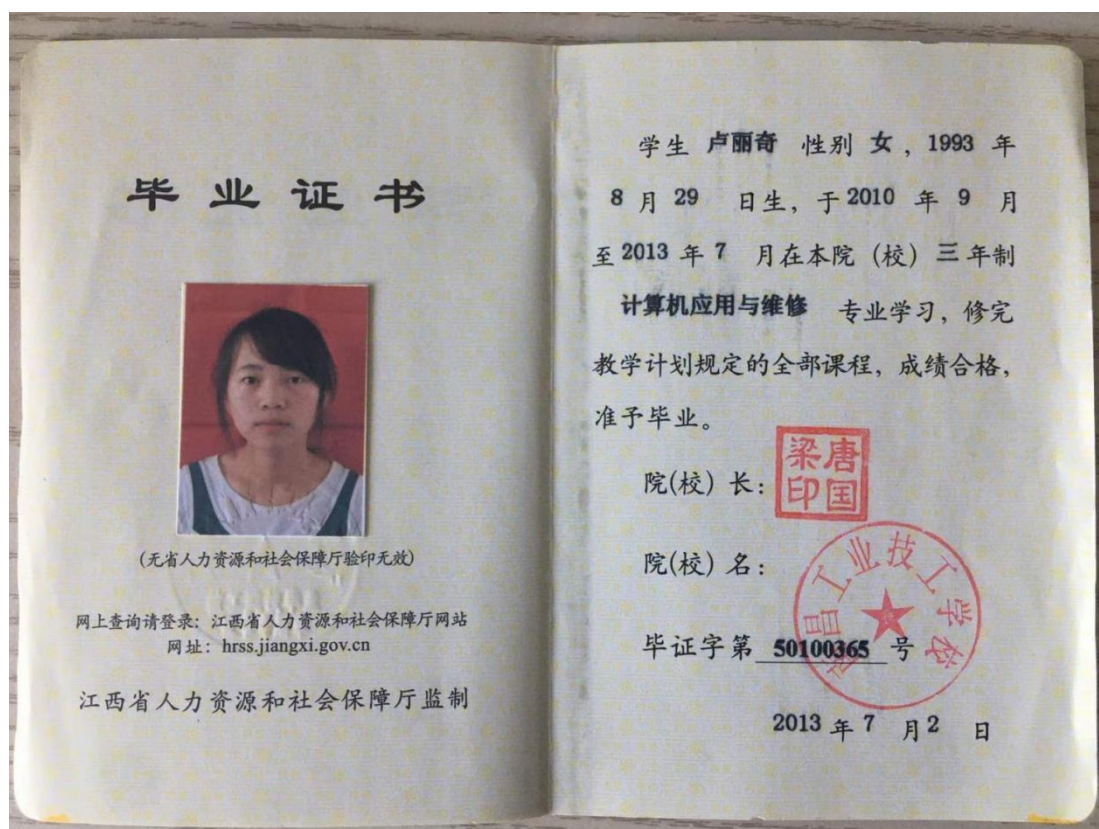 毕业证书
(无省人力资源和社会保障厅验印无效)
网上查询请登录：江西省人力资源和社会保障厅网站
网址：hrss.jiangxi.gov.cn
江西省人力资源和社会保障厅监制
学生 卢丽奇 性别 女，1993 年
8 月 29 日生，于 2010 年 9 月
至 2013 年 7 月在本院（校）三 年制
计算机应用与维修 专业学习，修完
教学计划规定的全部课程，成绩合格，
准予毕业。
院(校) 长：
唐国梁印
院(校) 名：
南昌工业技工学校
毕证字第 50100365 号
2013 年 7 月 2 日